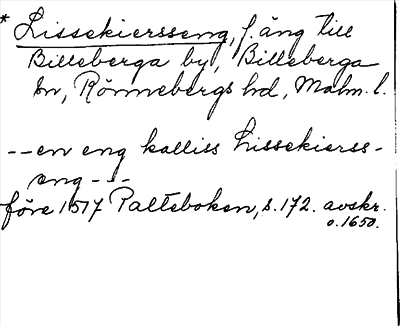 * Lissekiersseng, f. äng till
Billeberga by, Billeberga
sn, Rönnebergs hd, Malm. l.
--en eng kalliss Lissekierss-
eng---
före 1517 Palteboken, s. 172. avskr.
o. 1650.